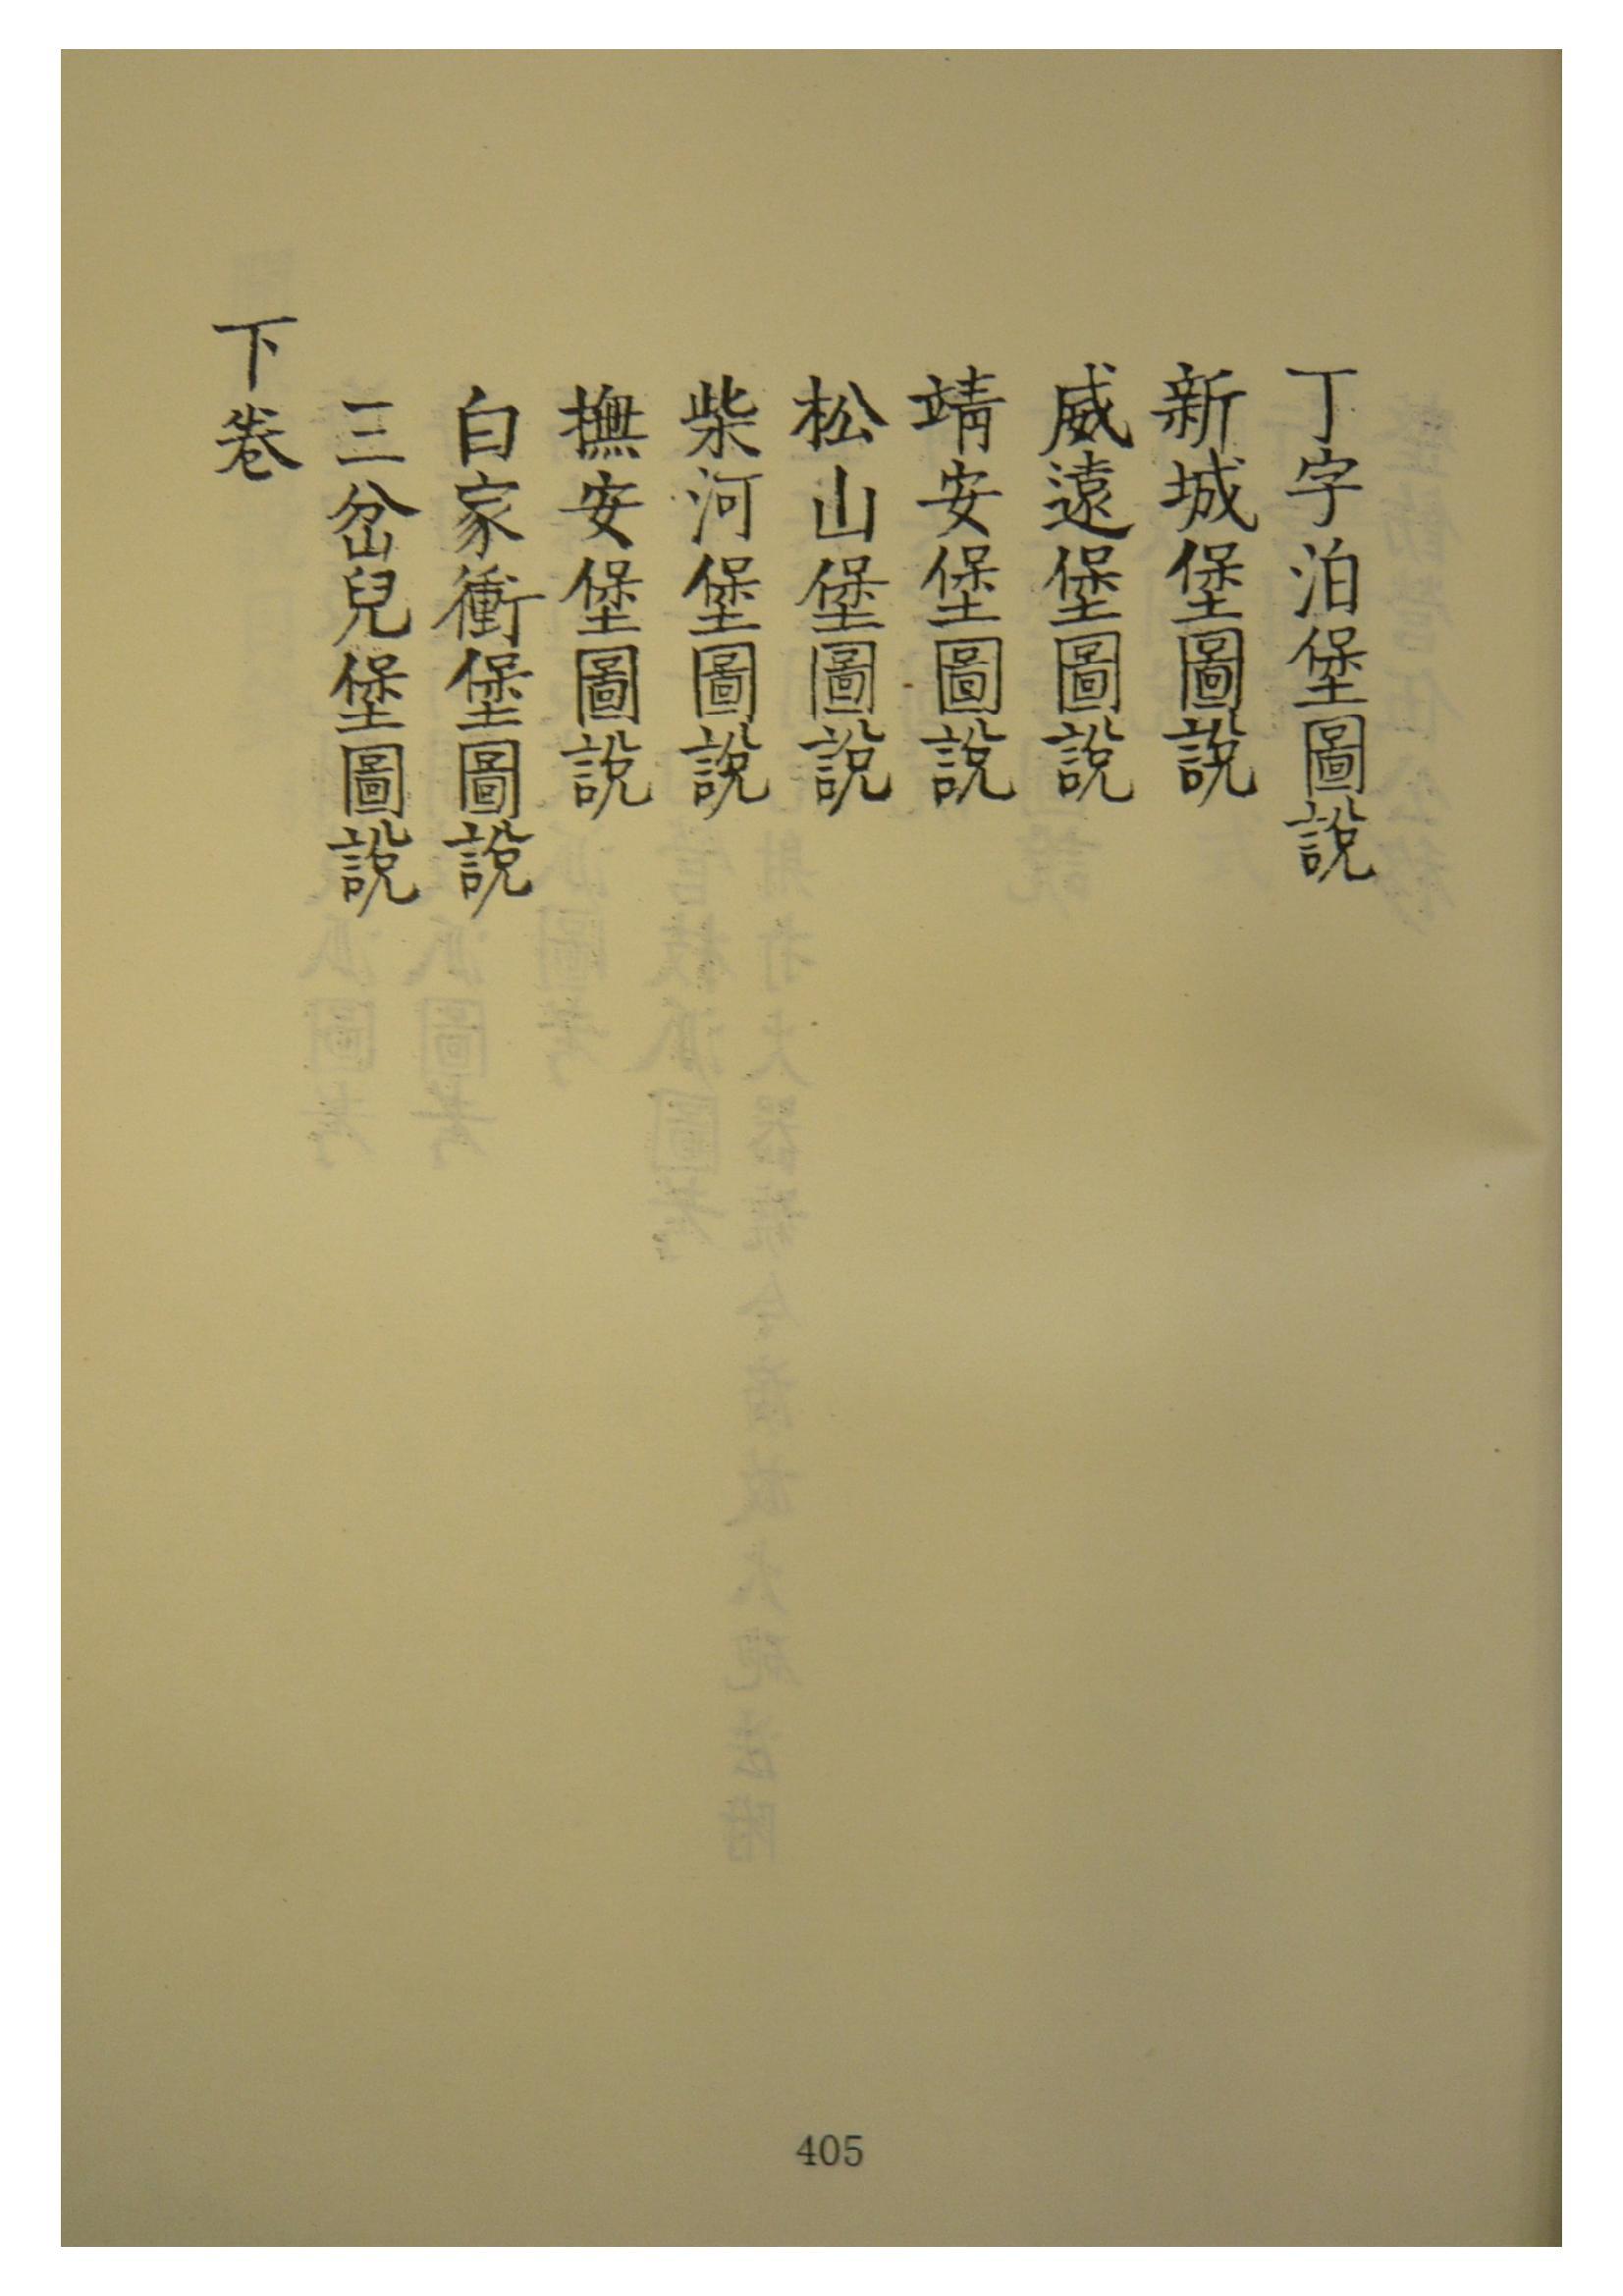 丁字泊堡圖說
新城堡圖說
威遠堡圖說
靖安堡圖說
松山堡圖說
柴河堡圖說
撫安堡圖說
白家衝堡圖說
三岔兒堡圖說
下卷
405